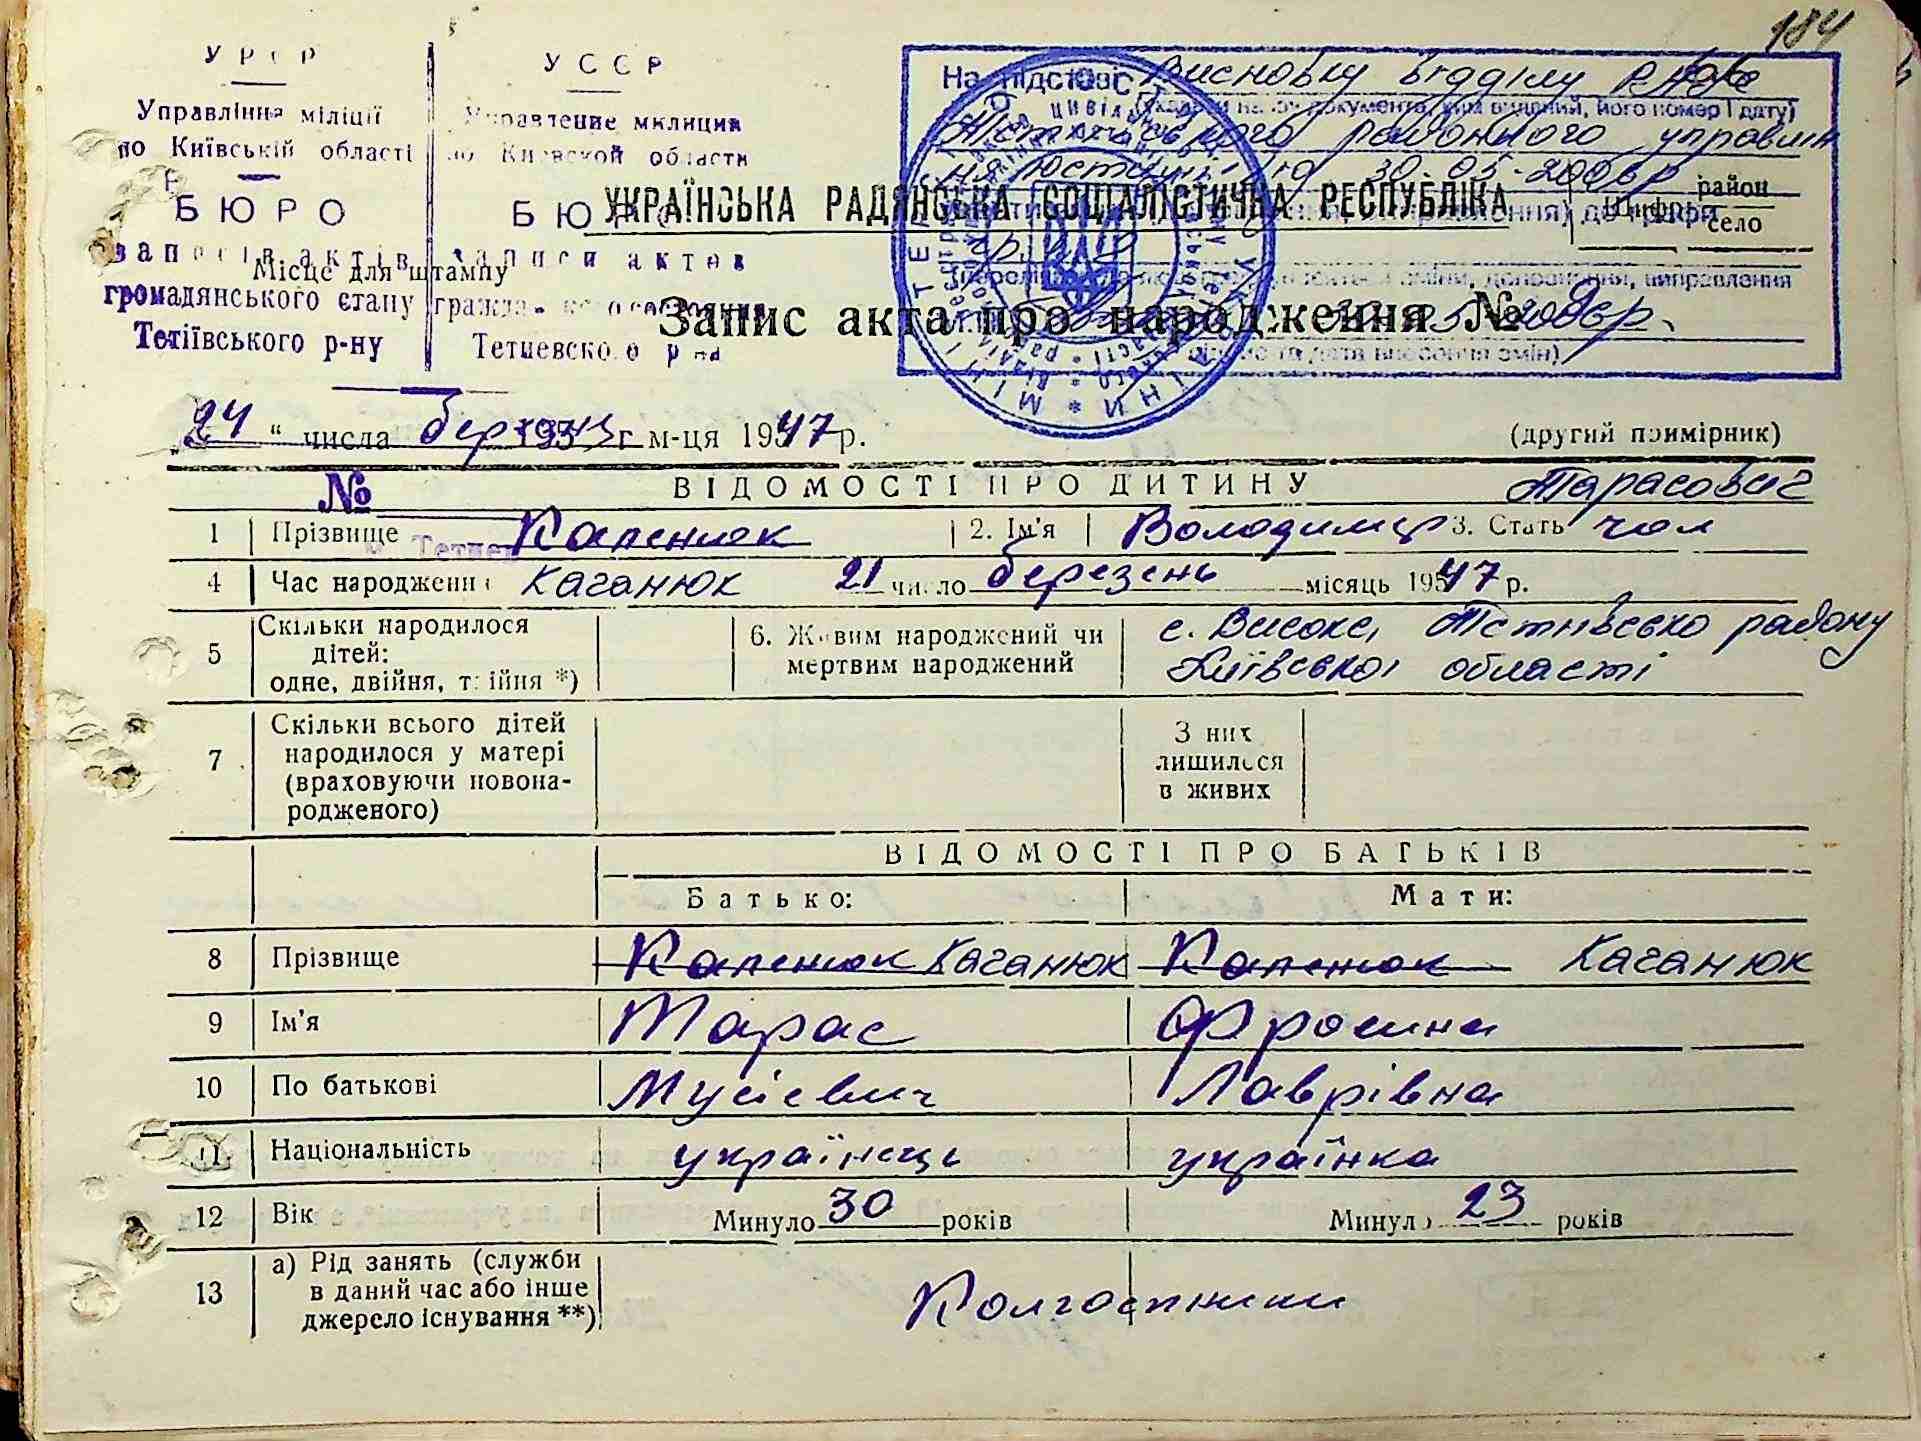 184
УРСР
Управління міліції
по Київській області
БЮРО
записів актів
громадянського стану
Тетіївського р-ну
УССР
Управление милиции
по Киевской области
БЮРО
записи актов
Тетиевского р-на
На підставі Висновку відділу РАЦС
(вказати назву документа, ким виданий, його номер і дату)
Тетіївського районного управлін
ня юстиції 30-05-2006р
район
Шифр
село
УКРАЇНСЬКА РАДЯНСЬКА СОЦІАЛІСТИЧНА РЕСПУБЛІКА
Місце для штампу
Запис акта про народження №
"24" числа березня м-ця 1947 р.
(другий примірник)
№
ВІДОМОСТІ ПРО ДИТИНУ
Тарасович
1 Прізвище Капенюк 2. Ім'я Володимир 3. Стать чол
4 Час народження Каганюк 21 число березень місяць 1947 р.
5 Скільки народилося дітей: одне, двійня, трійня *)
6. Живим народжений чи мертвим народжений
с. Високе, Тетіївсько району
Київської області
7 Скільки всього дітей народилося у матері (враховуючи новонародженого)
З них лишилося в живих
ВІДОМОСТІ ПРО БАТЬКІВ
Батько: Мати:
8 Прізвище Капенюк Каганюк Капенюк Каганюк
9 Ім'я Тарас Фросина
10 По батькові Мусієвич Лаврівна
11 Національність українець українка
12 Вік Минуло 30 років Минуло 23 років
13 а) Рід занять (служби в даний час або інше джерело існування **) Колгоспники